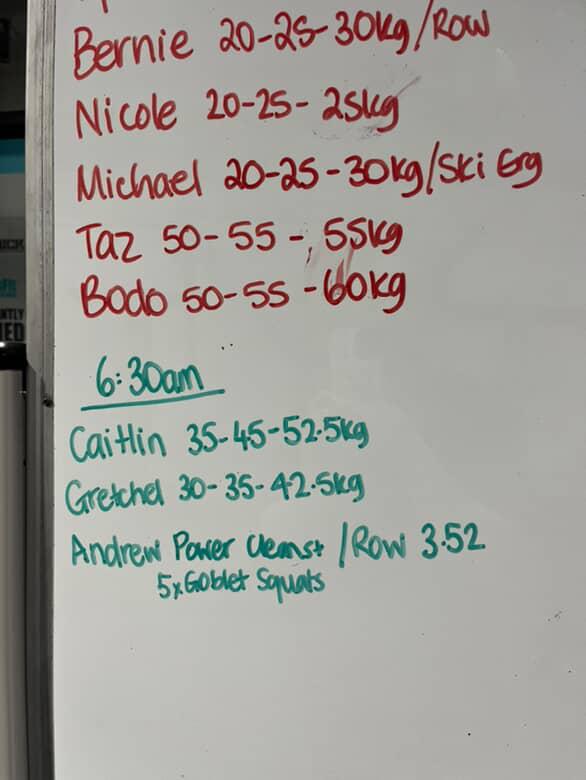 Bernie 20-25-30kg/Row
Nicole 20-25-25kg
Michael 20-25-30kg/Ski Erg
Taz 50-55-55kg
Bodo 50-55-60kg
6:30am
Caitlin 35-45-52.5kg
Gretchel 30-35-42.5kg
Andrew Power Cleans+ /Row 3.52
5x Goblet Squats